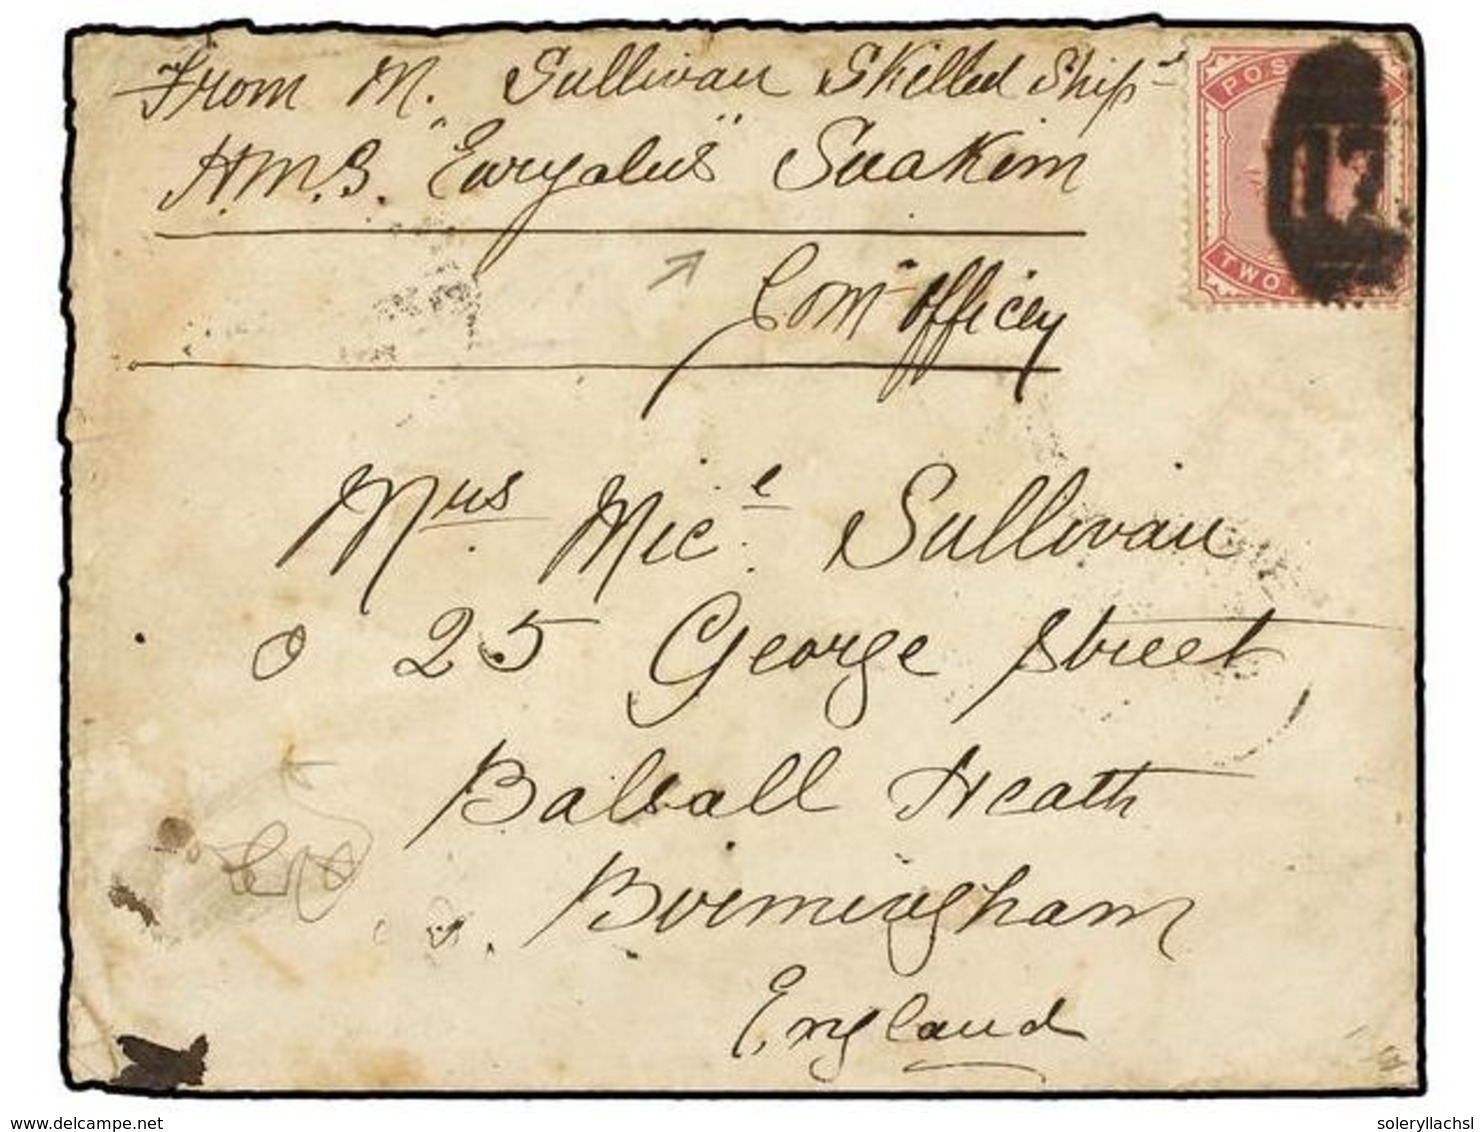 From M. Sullivan Skilled Ship^s
H.M.S. "Euryalus" Suakim
Com^r officey
Mrs. Mic^e. Sullivan
25 George Street
Balsall Heath
Birmingham
England
POS
TWO
delcampe.net
soleryllachsl